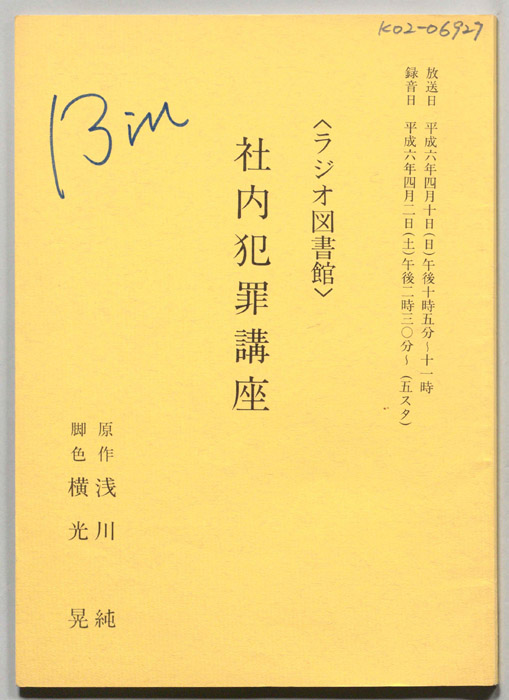 K02-06927
放送日 平成六年四月十日(日)午後十時五分~十一時
録音日 平成六年四月二日(土)午後二時三〇分~(五スタ)
〈ラジオ図書館〉
社内犯罪講座
原作 浅川 純
脚色 横光 晃